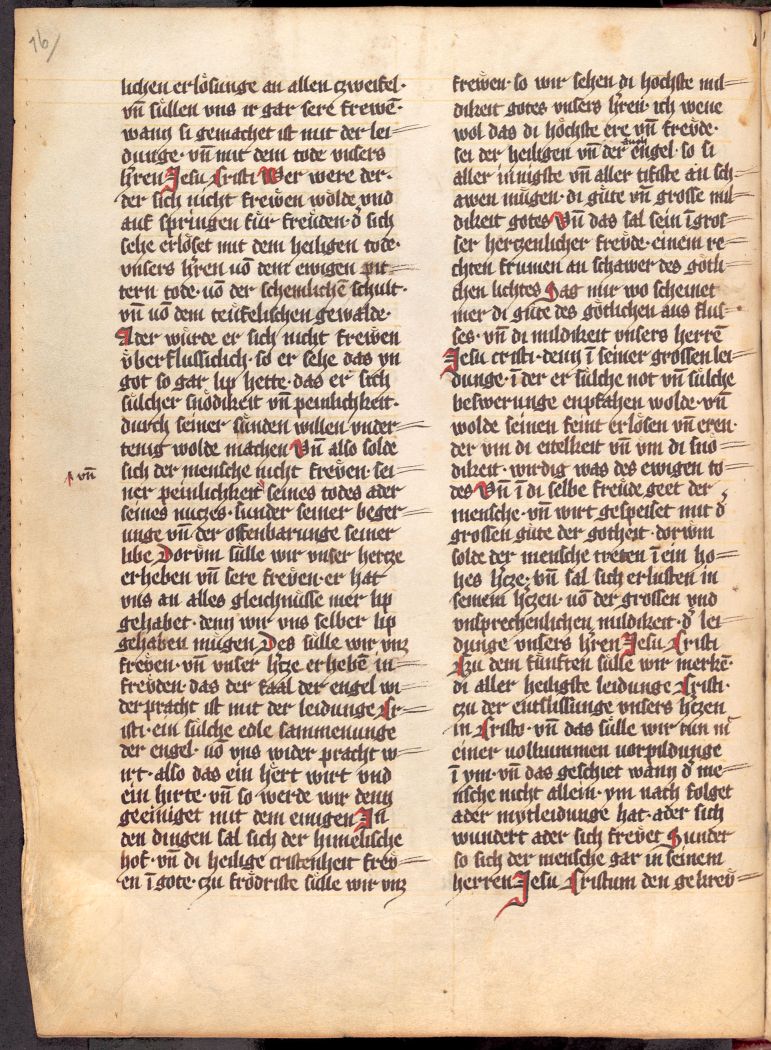 76/
lichen erlösunge an allen czweifel·
vn̄ süllen vns ir gar sere frewē·
wann si gemachet ist mit der lei=
dunge· vn̄ mit dem tode vnsers
h̄ren Jesu Cristi Wer were der·
der sich nicht frewen wolde vnd
auf springen für freuden· d̓ sich
sehe erlöset mit dem heiligen tode·
vnsers h̄ren vō dem ewigen pit=
tern tode· vō der schemlichē schult·
vn̄ vō dem teüfelischen gewalde·
Ader würde er sich nicht frewen
v̈berflussiclich· so er sehe das vn
got so gar lip hette· das er sich
sülcher snödikeit vn̄ peinlichkeit·
durch seiner sünden willen vnder=
tenig wolde machen Vn̄ also solde
sich der mensche nicht freẅen· sei=
ner peinlichkeit seines todes ader
vn̄
seines nuczes· sunder seiner beger=
unge vn̄ der offenbarunge seiner
libe Dorüm sülle wir vnser hercze
erheben vn̄ sere freẅen· er hat
vns an alles gleichnüsse mer lip
gehabet· denn wir vns selber lip
gehaben mügen Des sülle wir vnz
freẅen· vn̄ vnser h̄cze erhebē in=
freẅden· das der faal der engel wi=
der pracht ist mit der leidunge Cr=
isti· ein sülche edle sammenunge
der engel· vō vns wider pracht w=
irt· also das ein hert wirt vnd
ein hirte· vn̄ so werde wir denn
geeiniget mit dem einigen In
den dingen sal sich der himelische
hof· vn̄ di heilige cristenheit freẅ=
en ī gote· czu frödriste sülle wir vnz
frewen· so wir sehen di höchste mil=
dikeit gotes vnsers h̄ren· ich wene
wol das di höchste ere vn̄ freẅde·
sei der heiligen vn̄ der engel· so si
aller innigste vn̄ aller tifste an sch=
awen mügen· di güte vn̄ grosse mil=
dikeit gotes Vn̄ das sal sein ī gros=
ser herczenlicher freẅde· einem re=
chten frumen an schawer des götli=
chen lichtes Sag mir wo scheinet
mer di güte des götlichen aus flus=
ses· vn̄ di mildikeit vnsers herrē
Jesu cristi· denn ī seiner grossen lei=
dunge· ī der er sülche not vn̄ sülche
beswerunge enpfahen wolde· vn̄
wolde seinen feint erlösen vn̄ eren·
der vm di eitelkeit vn̄ vm di snö=
dikeit· wirdig was des ewigen to=
des Vn̄ ī di selbe freüde geet der
mensche· vn̄ wirt gespeiset mit d̓
grossen güte der gotheit· dorüm
solde der mensche treten ī ein ho=
hes h̄cze· vn̄ sal sich erlusten in
seinem h̄czen· vō der grossen vnd
vnsprechenlichen mildikeit· d̓ lei=
dunge vnsers h̄ren Jesu Cristi
Czu dem fünften sülle wir merkē·
di aller heiligste leidunge Cristi·
czu der entslissunge vnsers h̄czen
in Cristo· vn̄ das sülle wir tün mit
einer volkummen vorpildunge
ī ym· vn̄ das geschiet wann d̓ me=
nsche nicht allein· ym nach folget
ader mytleidunge hat· ader sich
wundert ader sich freẅet Sunder
so sich der mensche gar in seinem
herren Jesu Cristum den gekreẅ=